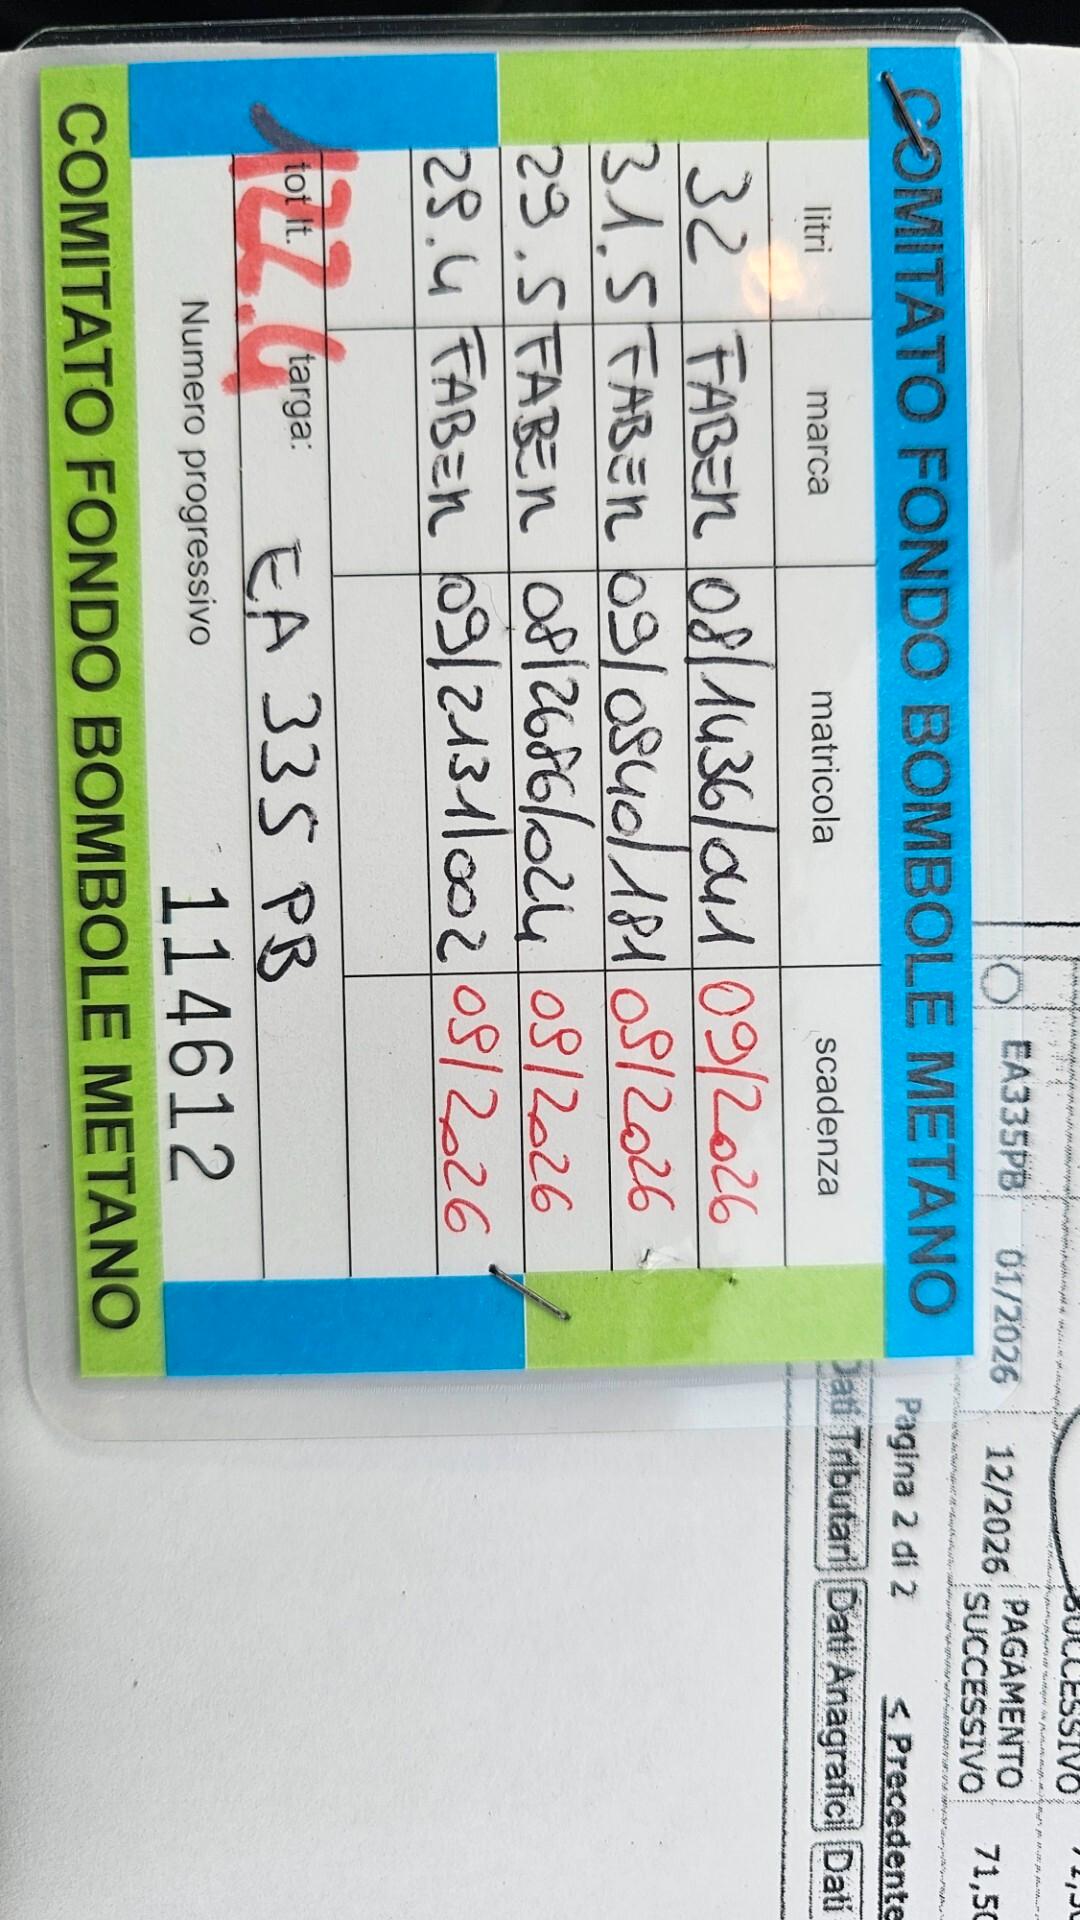 SUCCESSIVO
EA335PB 01/2026 12/2026 PAGAMENTO SUCCESSIVO 71,50
Pagina 2 di 2 < Precedente
Dati Tributari Dati Anagrafici Dati
COMITATO FONDO BOMBOLE METANO
litri marca matricola scadenza
32 FABER 08/1436/041 09/2026
31.5 FABER 09/0840/181 09/2026
29.5 FABER 08/2686/024 09/2026
29.4 FABER 09/2131/002 09/2026
tot lt. 122.4 targa: EA 335 PB
Numero progressivo 114612
COMITATO FONDO BOMBOLE METANO